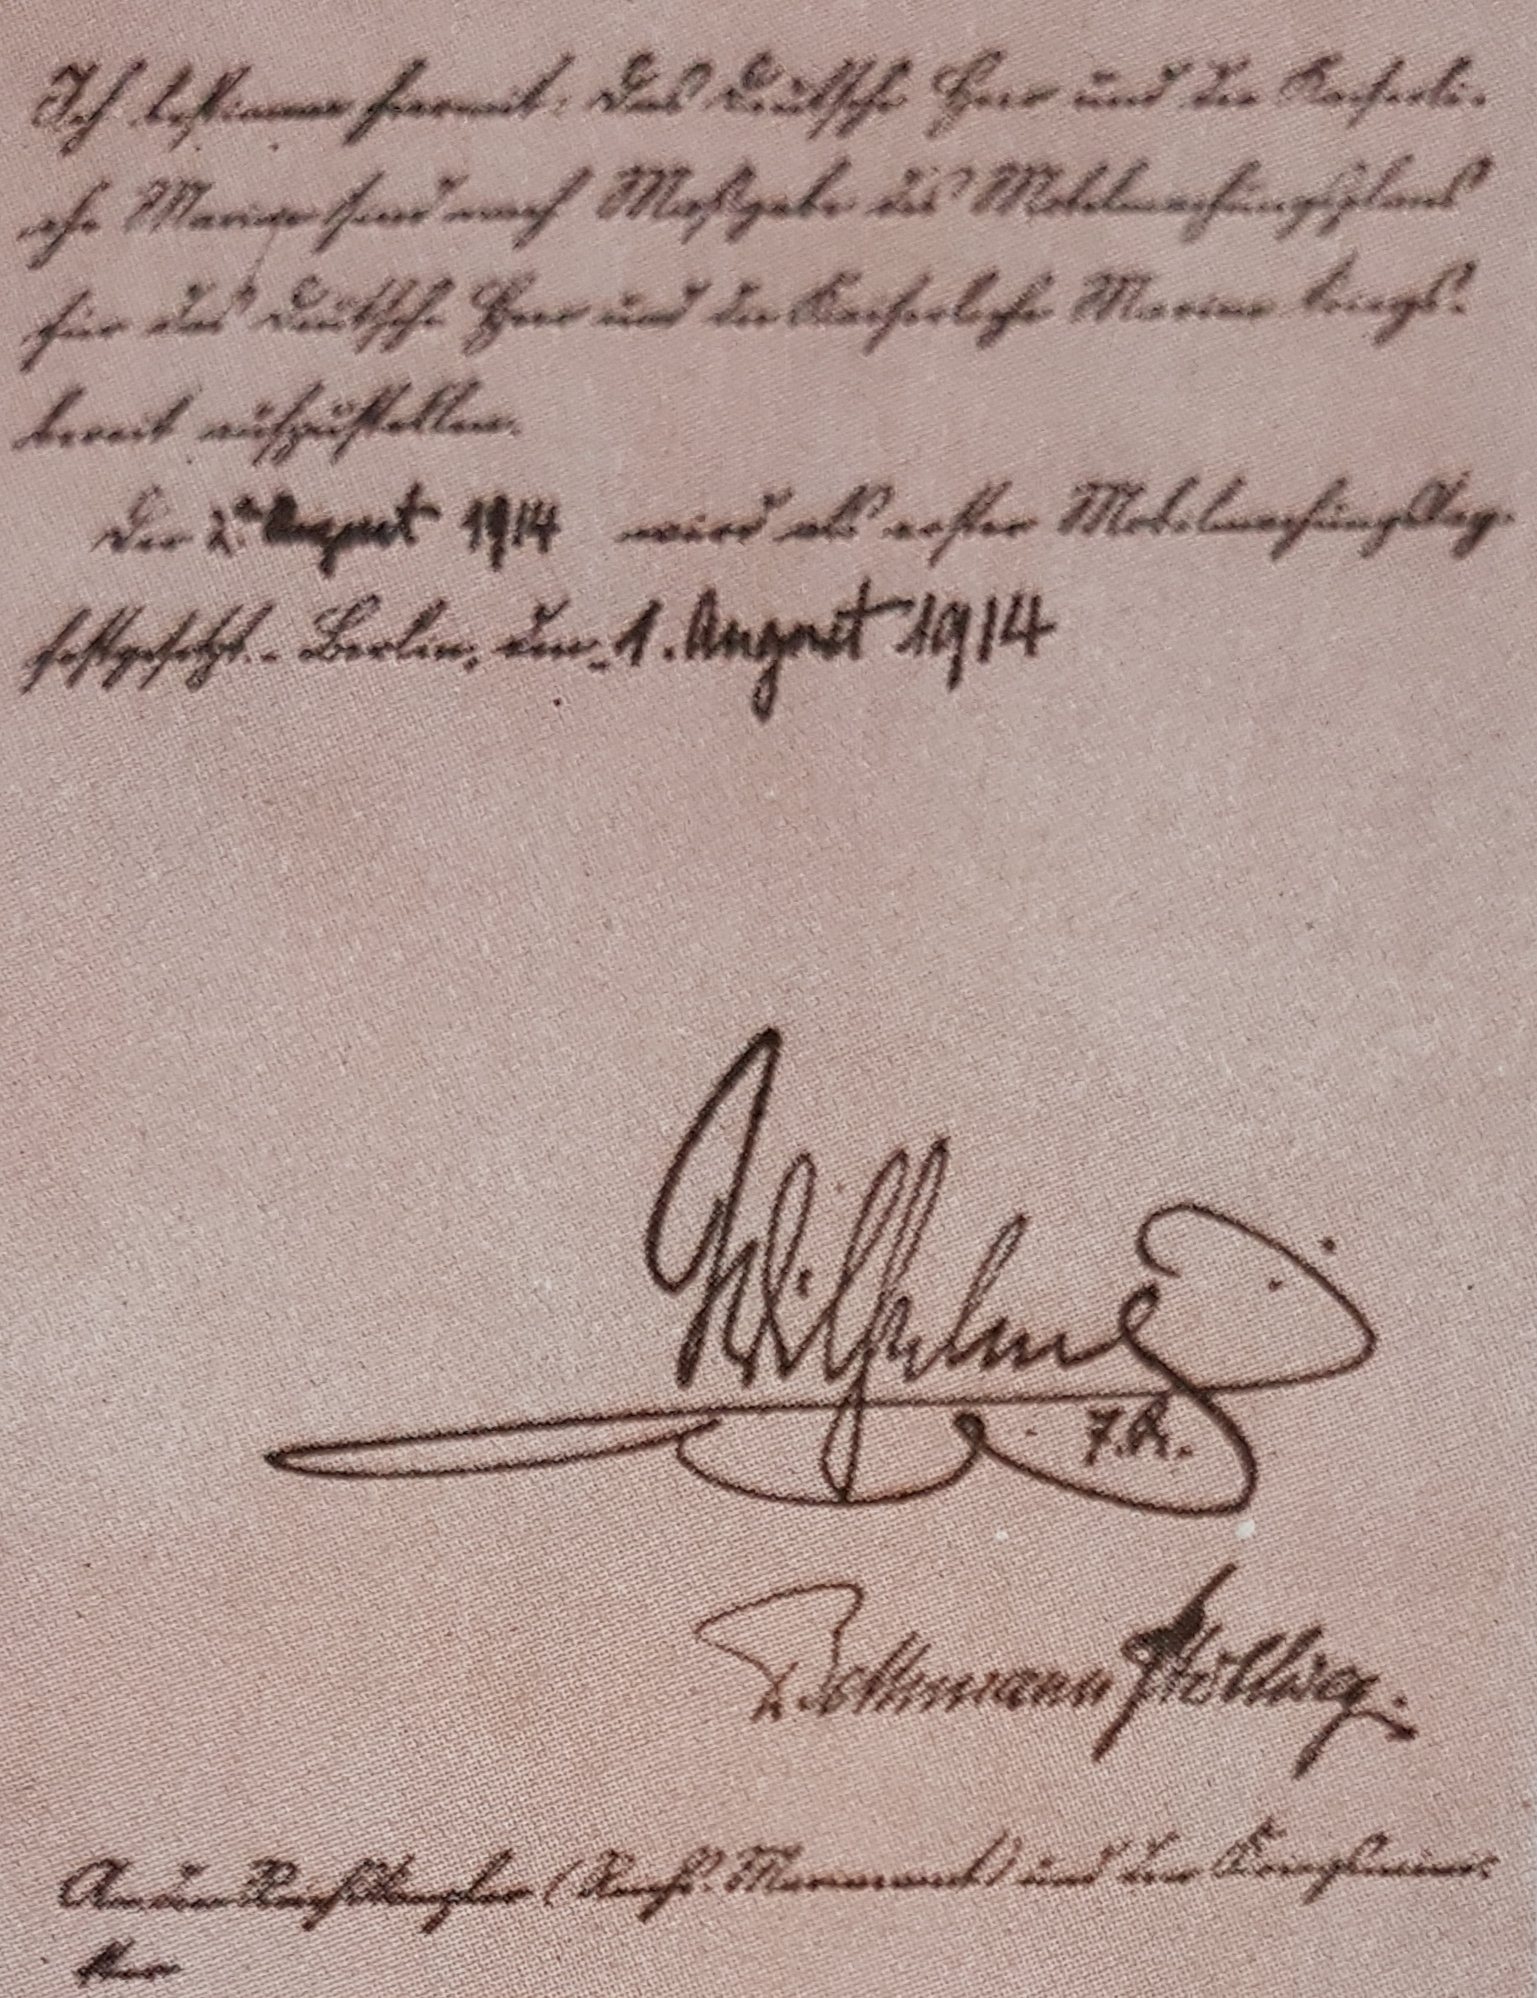 Ich bestimme hiermit: Das Deutsche Heer und die Kaiserli-
che Marine sind nach Maßgabe des Mobilmachungsplans
für das Deutsche Heer und die Kaiserliche Marine kriegs-
bereit aufzustellen.
Der 2te August 1914 wird als erster Mobilmachungstag
festgesetzt. Berlin, den 1. August 1914
Wilhelm
I.R.
Bethmann Hollweg.
An den Reichskanzler (Reichs-Marineamt) und den Kriegsminis-
ter